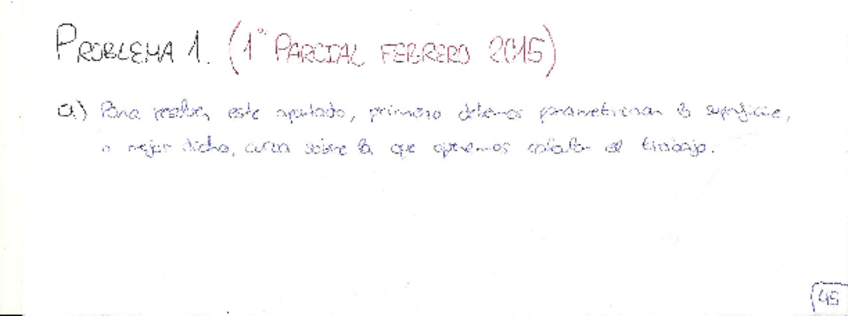 PROBLEMA 1. (1º PARCIAL FEBRERO 2015)
a) Para resolver este apartado, primero debemos parametrizar la superficie,
o mejor dicho, curva sobre la que queremos calcular el trabajo.
45